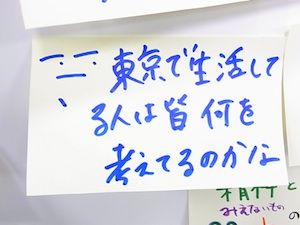 東京で生活して
る人は皆 何を
考えてるのかな
と
みえないもの
の